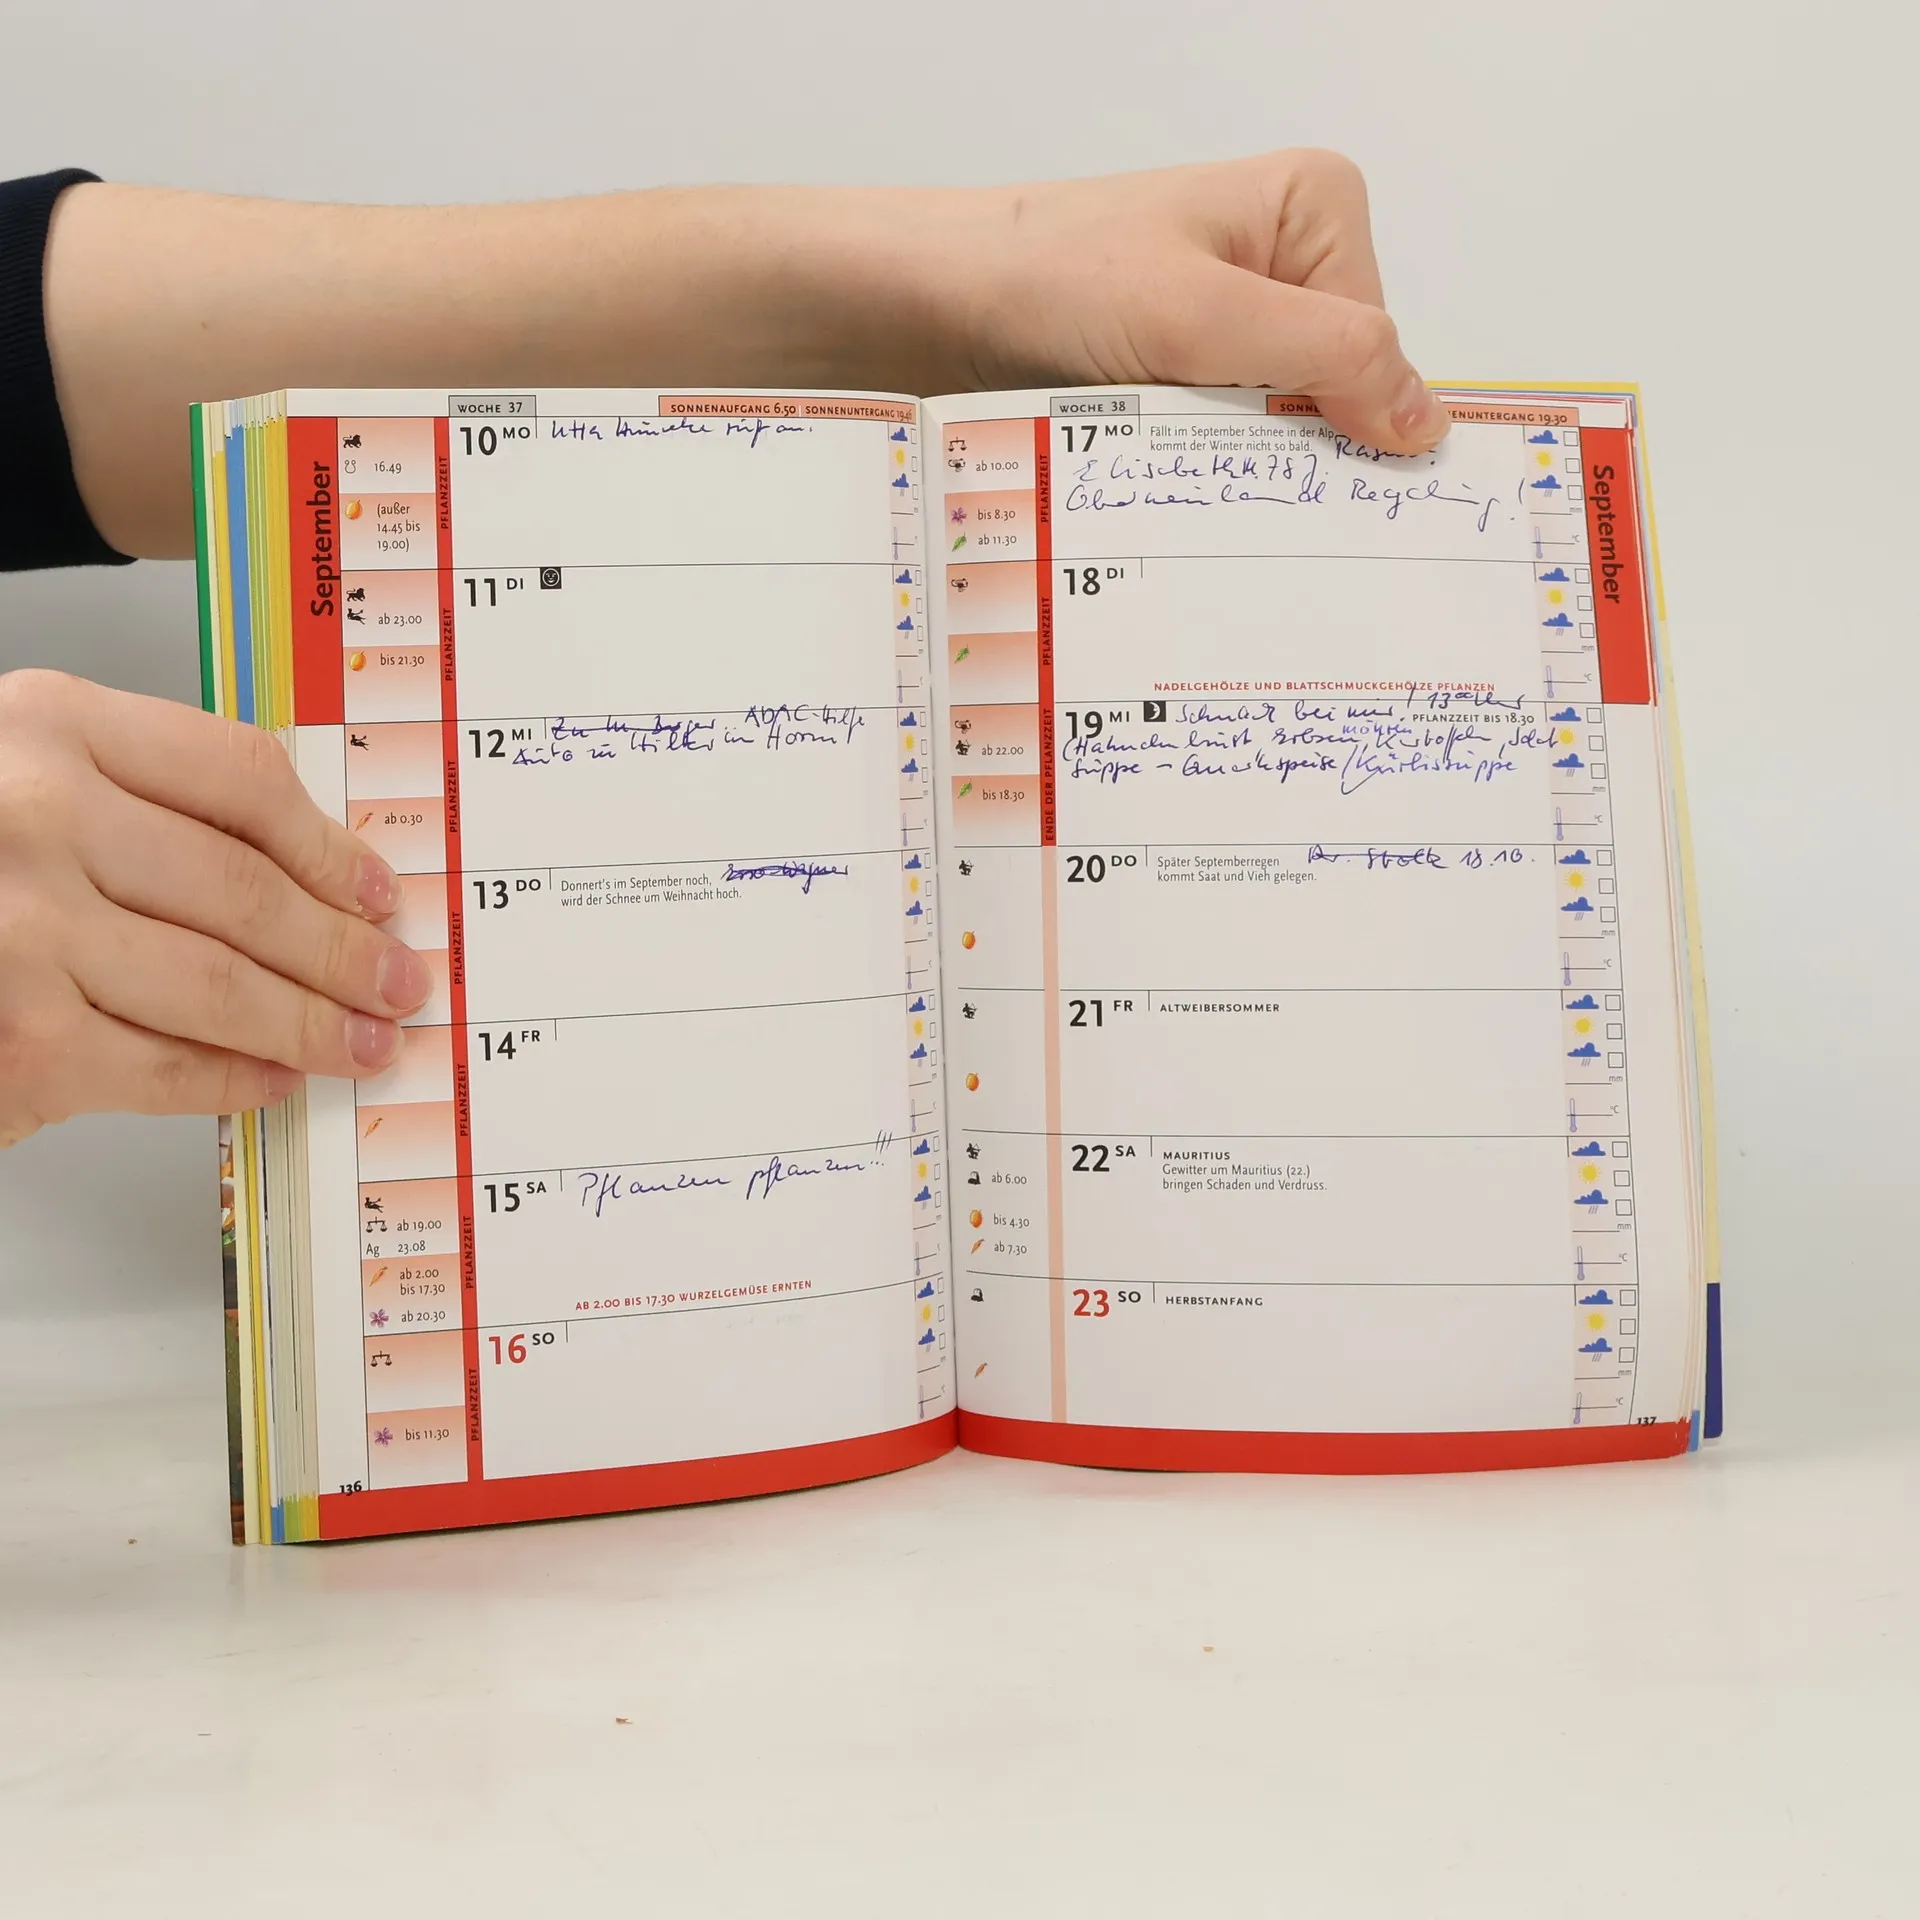 WOCHE 37
SONNENAUFGANG 6.50 | SONNENUNTERGANG 19.46
September
10 MO
ruft an.
16.49
(außer
14.45 bis
19.00)
PFLANZZEIT
11 DI
ab 23.00
bis 21.30
PFLANZZEIT
12 MI
ADAC-Hilfe
Auto zu in
ab 0.30
PFLANZZEIT
13 DO
Donnert's im September noch,
wird der Schnee um Weihnacht hoch.
PFLANZZEIT
14 FR
PFLANZZEIT
15 SA
Pflanzen pflanzen!!!
ab 19.00
Ag 23.08
ab 2.00
bis 17.30
ab 20.30
PFLANZZEIT
AB 2.00 BIS 17.30 WURZELGEMÜSE ERNTEN
16 SO
bis 11.30
PFLANZZEIT
136
WOCHE 38
SONN ENUNTERGANG 19.30
September
17 MO
Fällt im September Schnee in der Alp
kommt der Winter nicht so bald.
Elisabeth 78
Recycling!
ab 10.00
bis 8.30
ab 11.30
PFLANZZEIT
mm
°C
18 DI
PFLANZZEIT
NADELGEHÖLZE UND BLATTSCHMUCKGEHÖLZE PFLANZEN
mm
°C
19 MI
13 00 Uhr
bei mir!
PFLANZZEIT BIS 18.30
Möhren
(Hähnchen Erbsen Kartoffeln, Salat
Suppe - Quarkspeise / Kürbissuppe
ab 22.00
bis 18.30
ENDE DER PFLANZZEIT
mm
°C
20 DO
Später Septemberregen
kommt Saat und Vieh gelegen.
Dr. 18.10.
mm
°C
21 FR
ALTWEIBERSOMMER
mm
°C
22 SA
MAURITIUS
Gewitter um Mauritius (22.)
bringen Schaden und Verdruss.
ab 6.00
bis 4.30
ab 7.30
mm
°C
23 SO
HERBSTANFANG
mm
°C
137